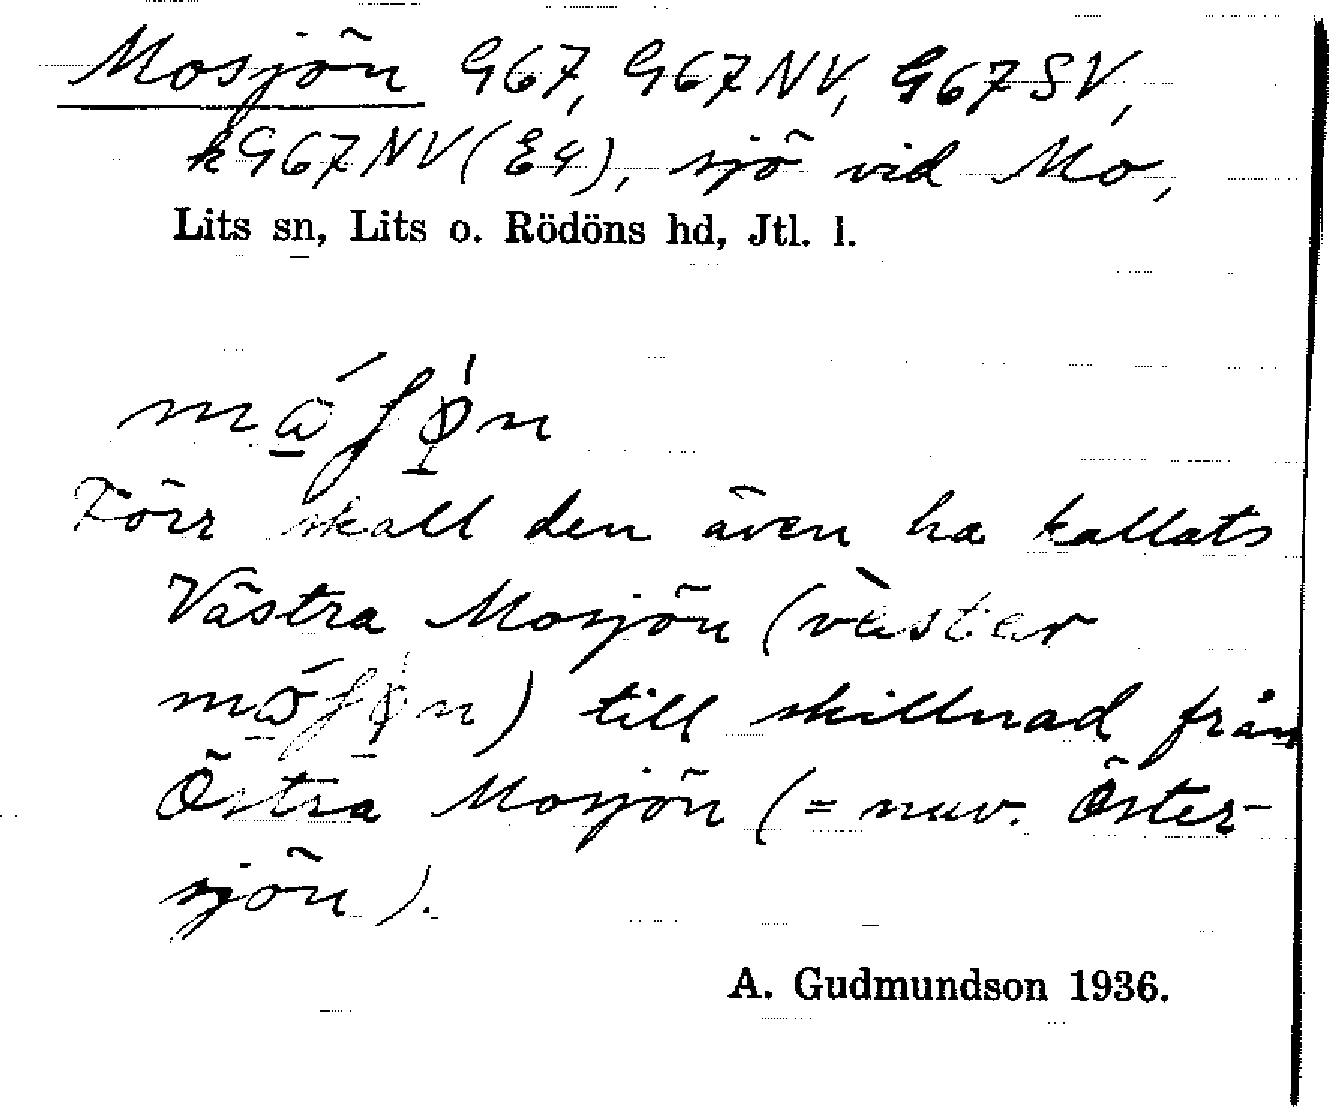 Mosjön G67, G67NV, G67SV,
kG67NV(E4), sjö vid Mo,
Lits sn, Lits o. Rödöns hd, Jtl. l.
Förr skall den även ha kallats
Västra Mosjön (vὰster
) till skillnad från
Östra Mosjön (= nuv. Öster-
sjön).
A. Gudmundson 1936.